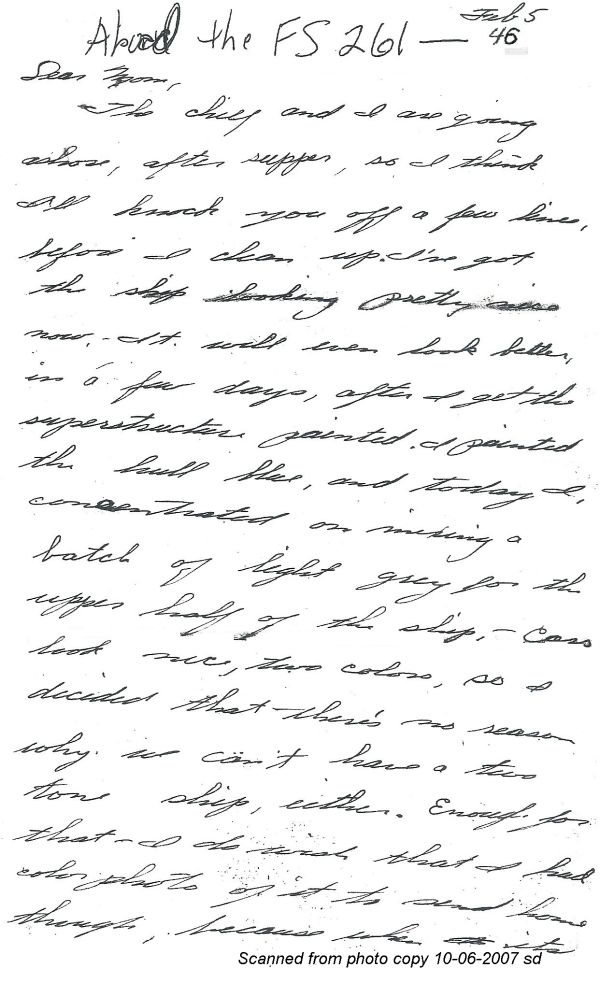 Aboard the FS 261 — Feb 5
46
Dear Mom,
The chief and I are going
ashore, after supper, so I think
I'll knock you off a few lines,
before I clean up. I've got
the ship looking pretty nice
now. - It will even look better,
in a few days, after I get the
superstructure painted. I painted
the hull blue, and today I,
concentrated on mixing a
batch of light grey for the
upper half of the ship, - Cars
look nice, two colors, so I
decided that there's no reason
why we can't have a two
tone ship, either. Enough for
that - I do wish that I had
color photo of it to send home
though, because when its
Scanned from photo copy 10-06-2007 sd